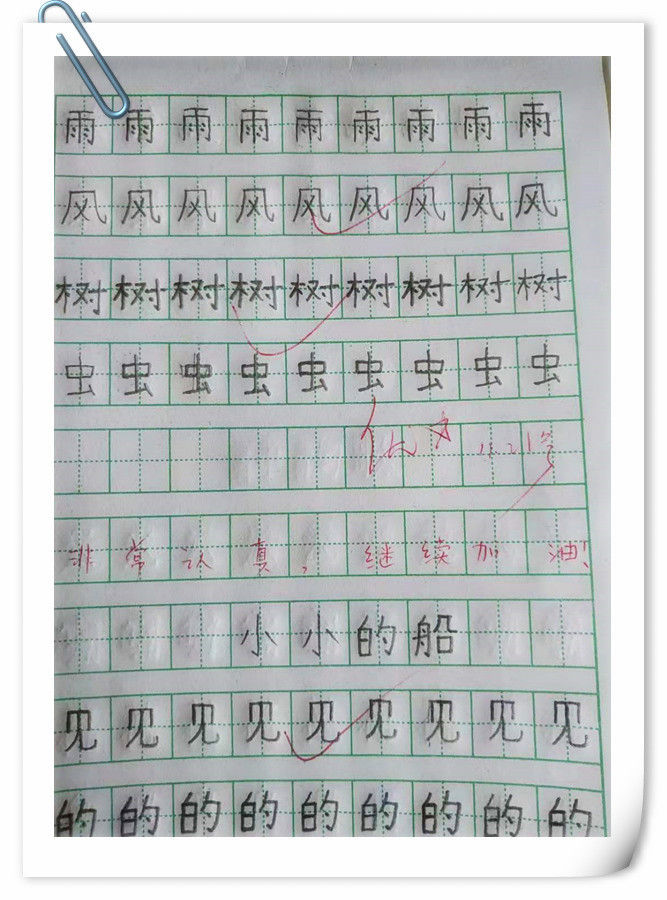 雨雨雨雨雨雨雨雨雨
风风风风风风风风风
树树树树树树树树树
虫虫虫虫虫虫虫虫虫
优 11.21号
非常认真，继续加油！
小小的船
见见见见见见见见见
的的的的的的的的的